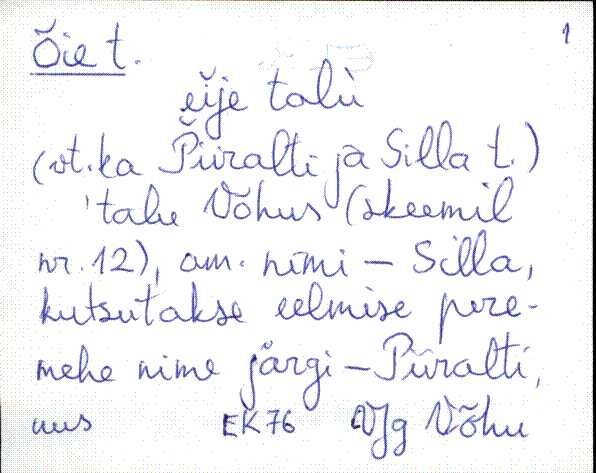 1
Õie t.
eĭje talù
(vt. ka Piiralti ja Silla t.)
'talu Võhus (skeemil
nr. 12), am. nimi – Silla,
kutsutakse eelmise pere-
mehe nime järgi – Piiralti,
uus EK76 VJg Võhu